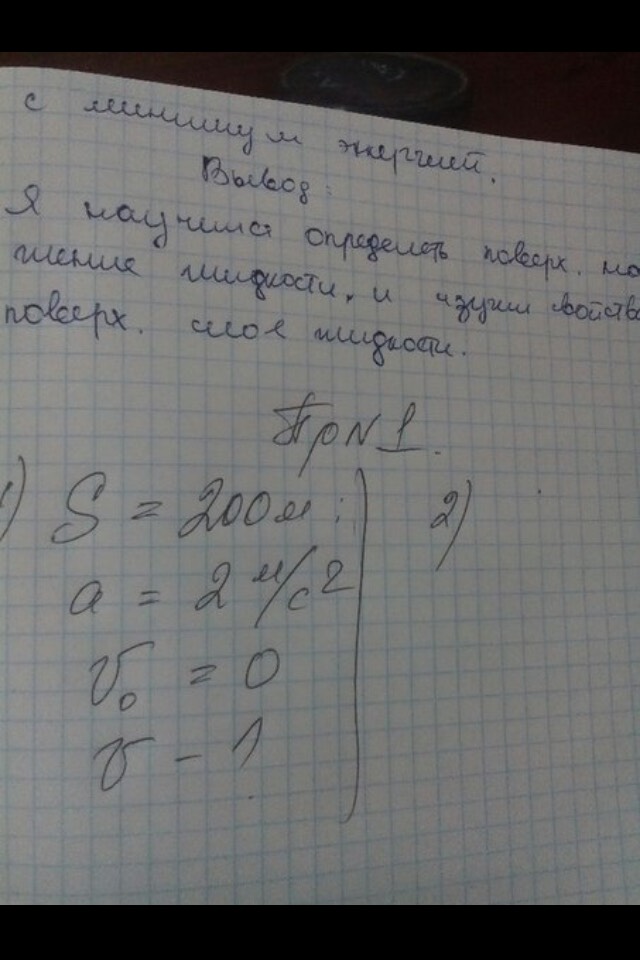 с минимум энергией.
Вывод:
Я научился определять поверх. на
жение жидкости, и изучил свойства
поверх. слое жидкости.
Пр№1.
1) S = 200м; 2)
a = 2 м/с2
V0 = 0
V - ?